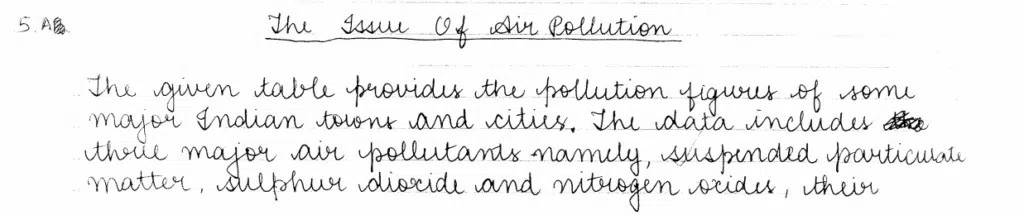 5. A
The Issue Of Air Pollution
The given table provides the pollution figures of some
major Indian towns and cities. The data includes
three major air pollutants namely, suspended particulate
matter, sulphur dioxide and nitrogen oxides, their